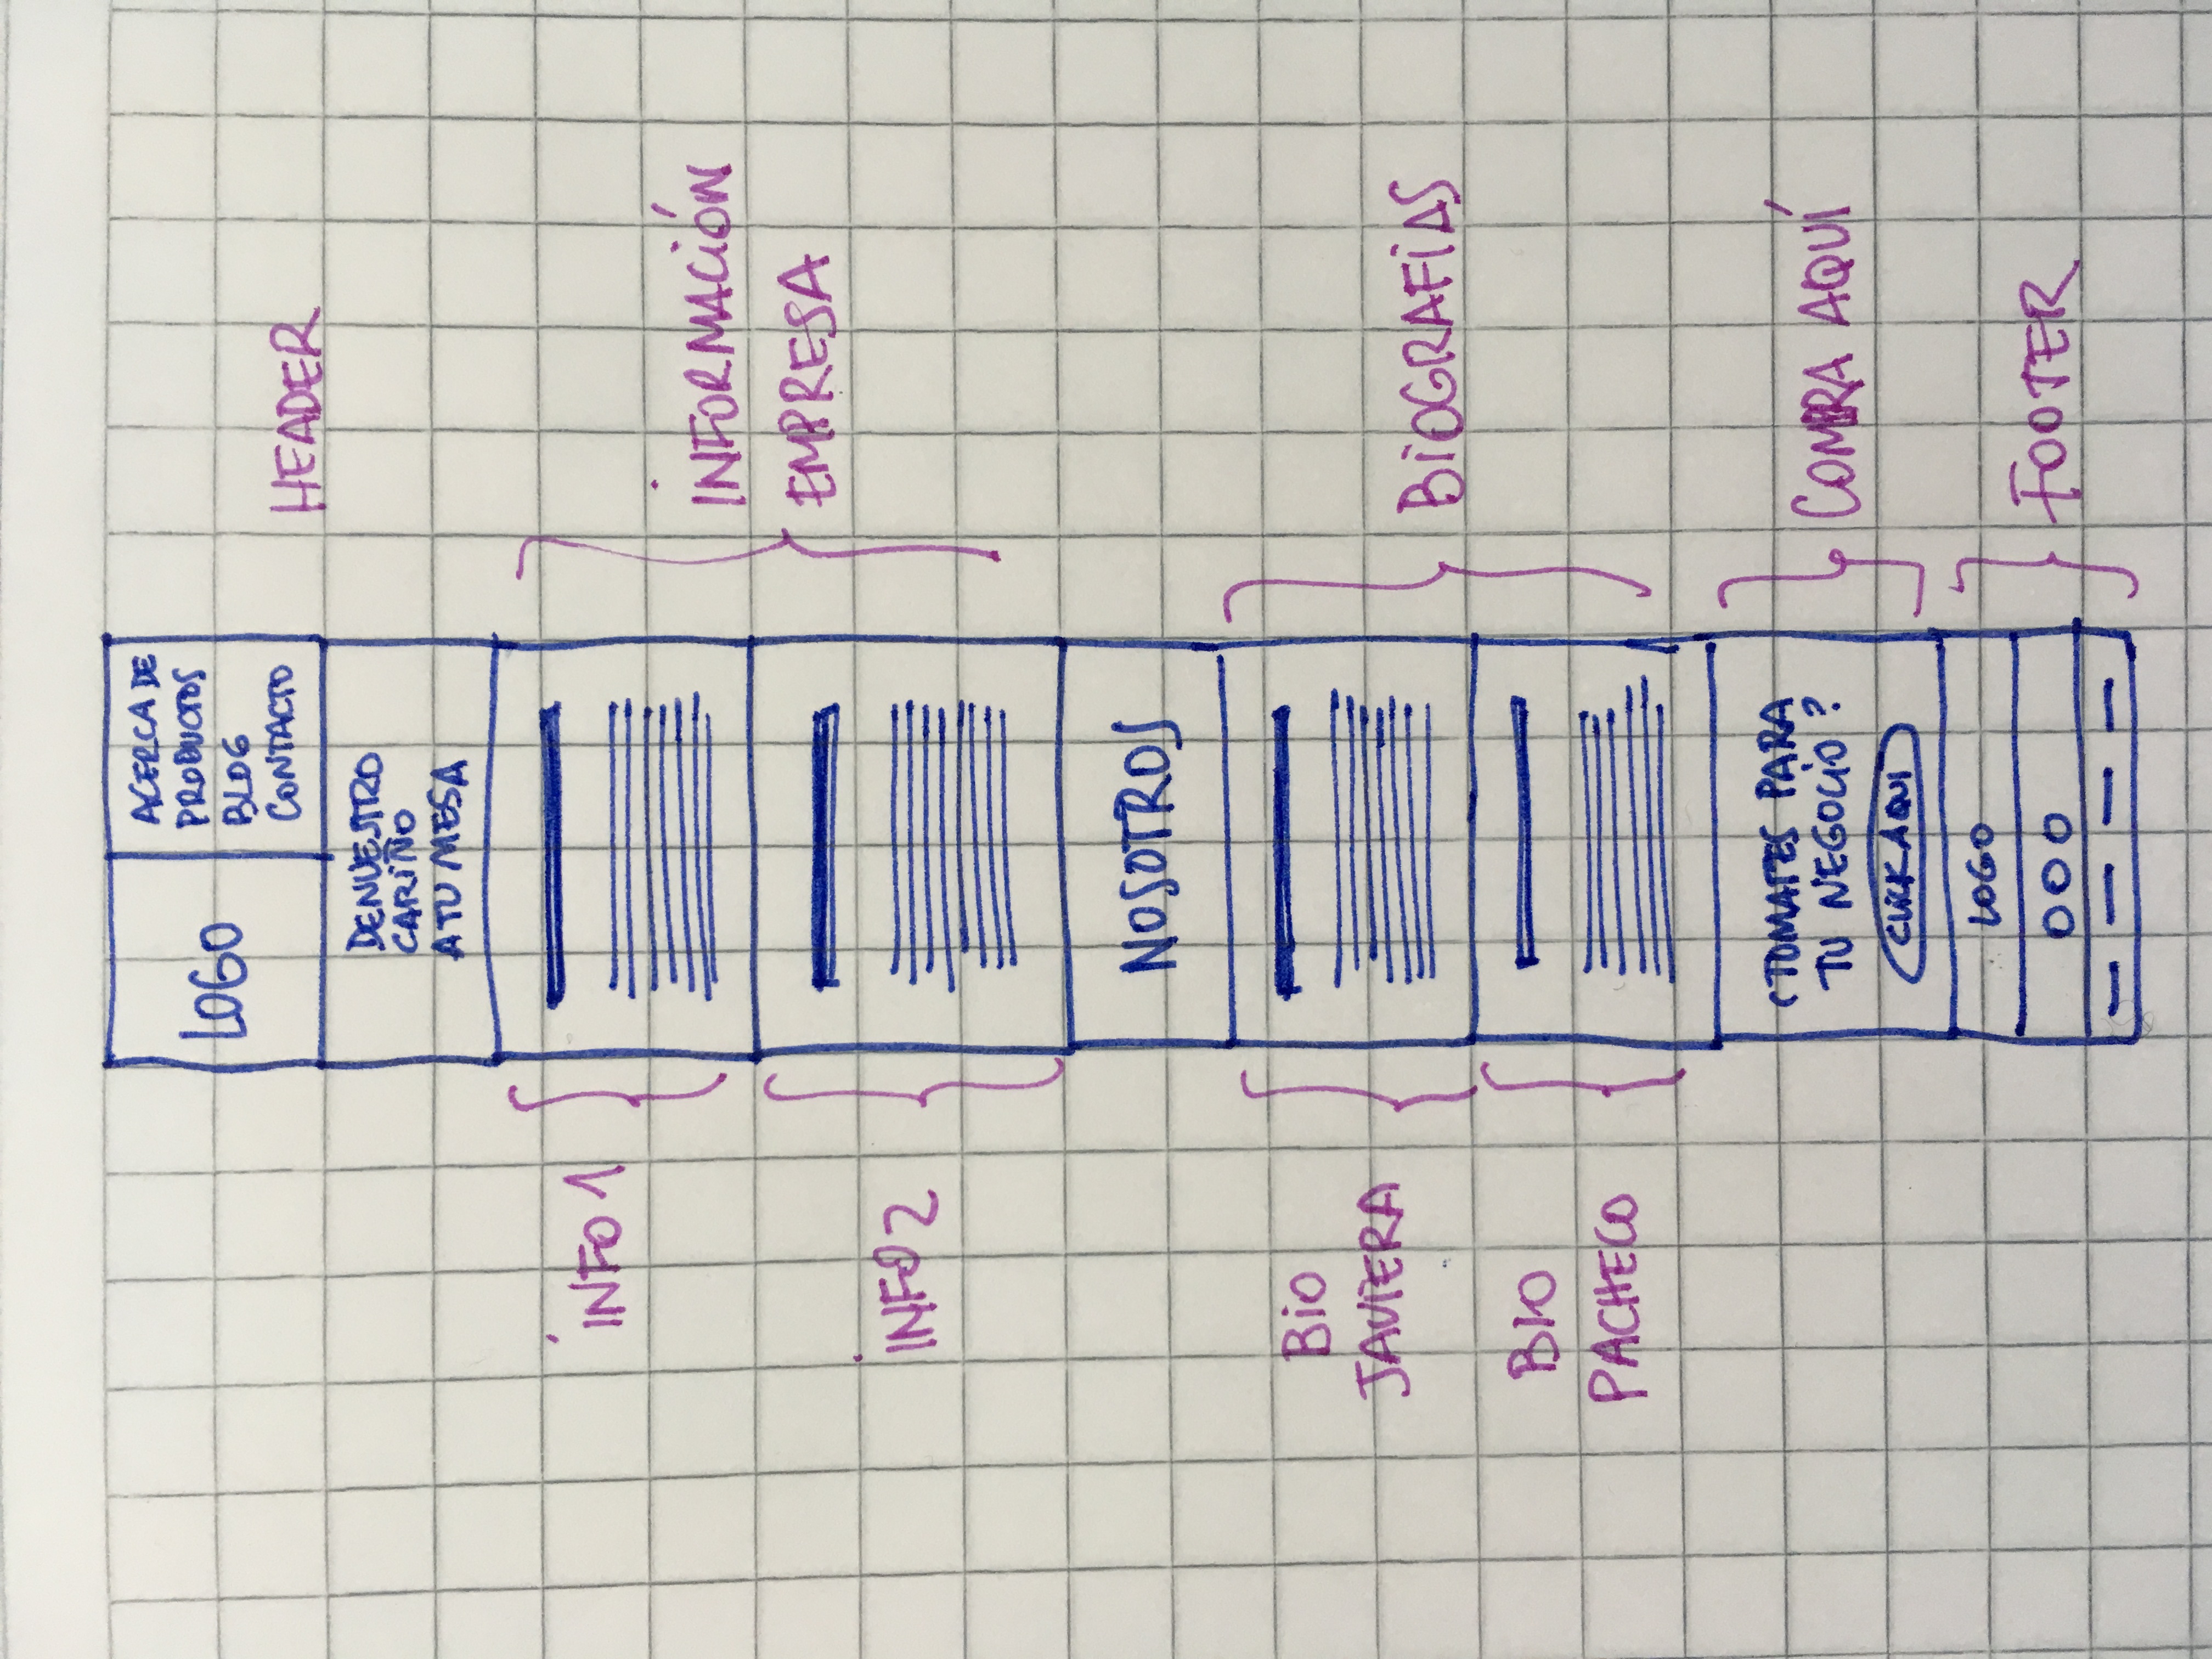 LOGO
ACERCA DE
PRODUCTOS
BLOG
CONTACTO
HEADER
DE NUESTRO
CARIÑO
A TU MESA
INFO 1
INFORMACIÓN
EMPRESA
INFO 2
NOSOTROS
BIO
JAVIERA
BIOGRAFIAS
BIO
PACHECO
¿TOMATES PARA
TU NEGOCIO?
CLICK AQUI
COMPRA AQUÍ
LOGO
FOOTER